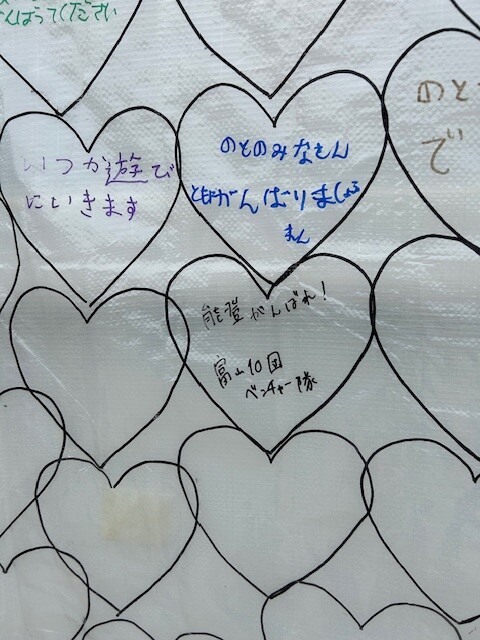 んばってください
いつか遊び
にいきます
のとのみなもん
がんばりましょう
まん
のと
で
能登がんばれ!
富山10団
ベンチャー隊